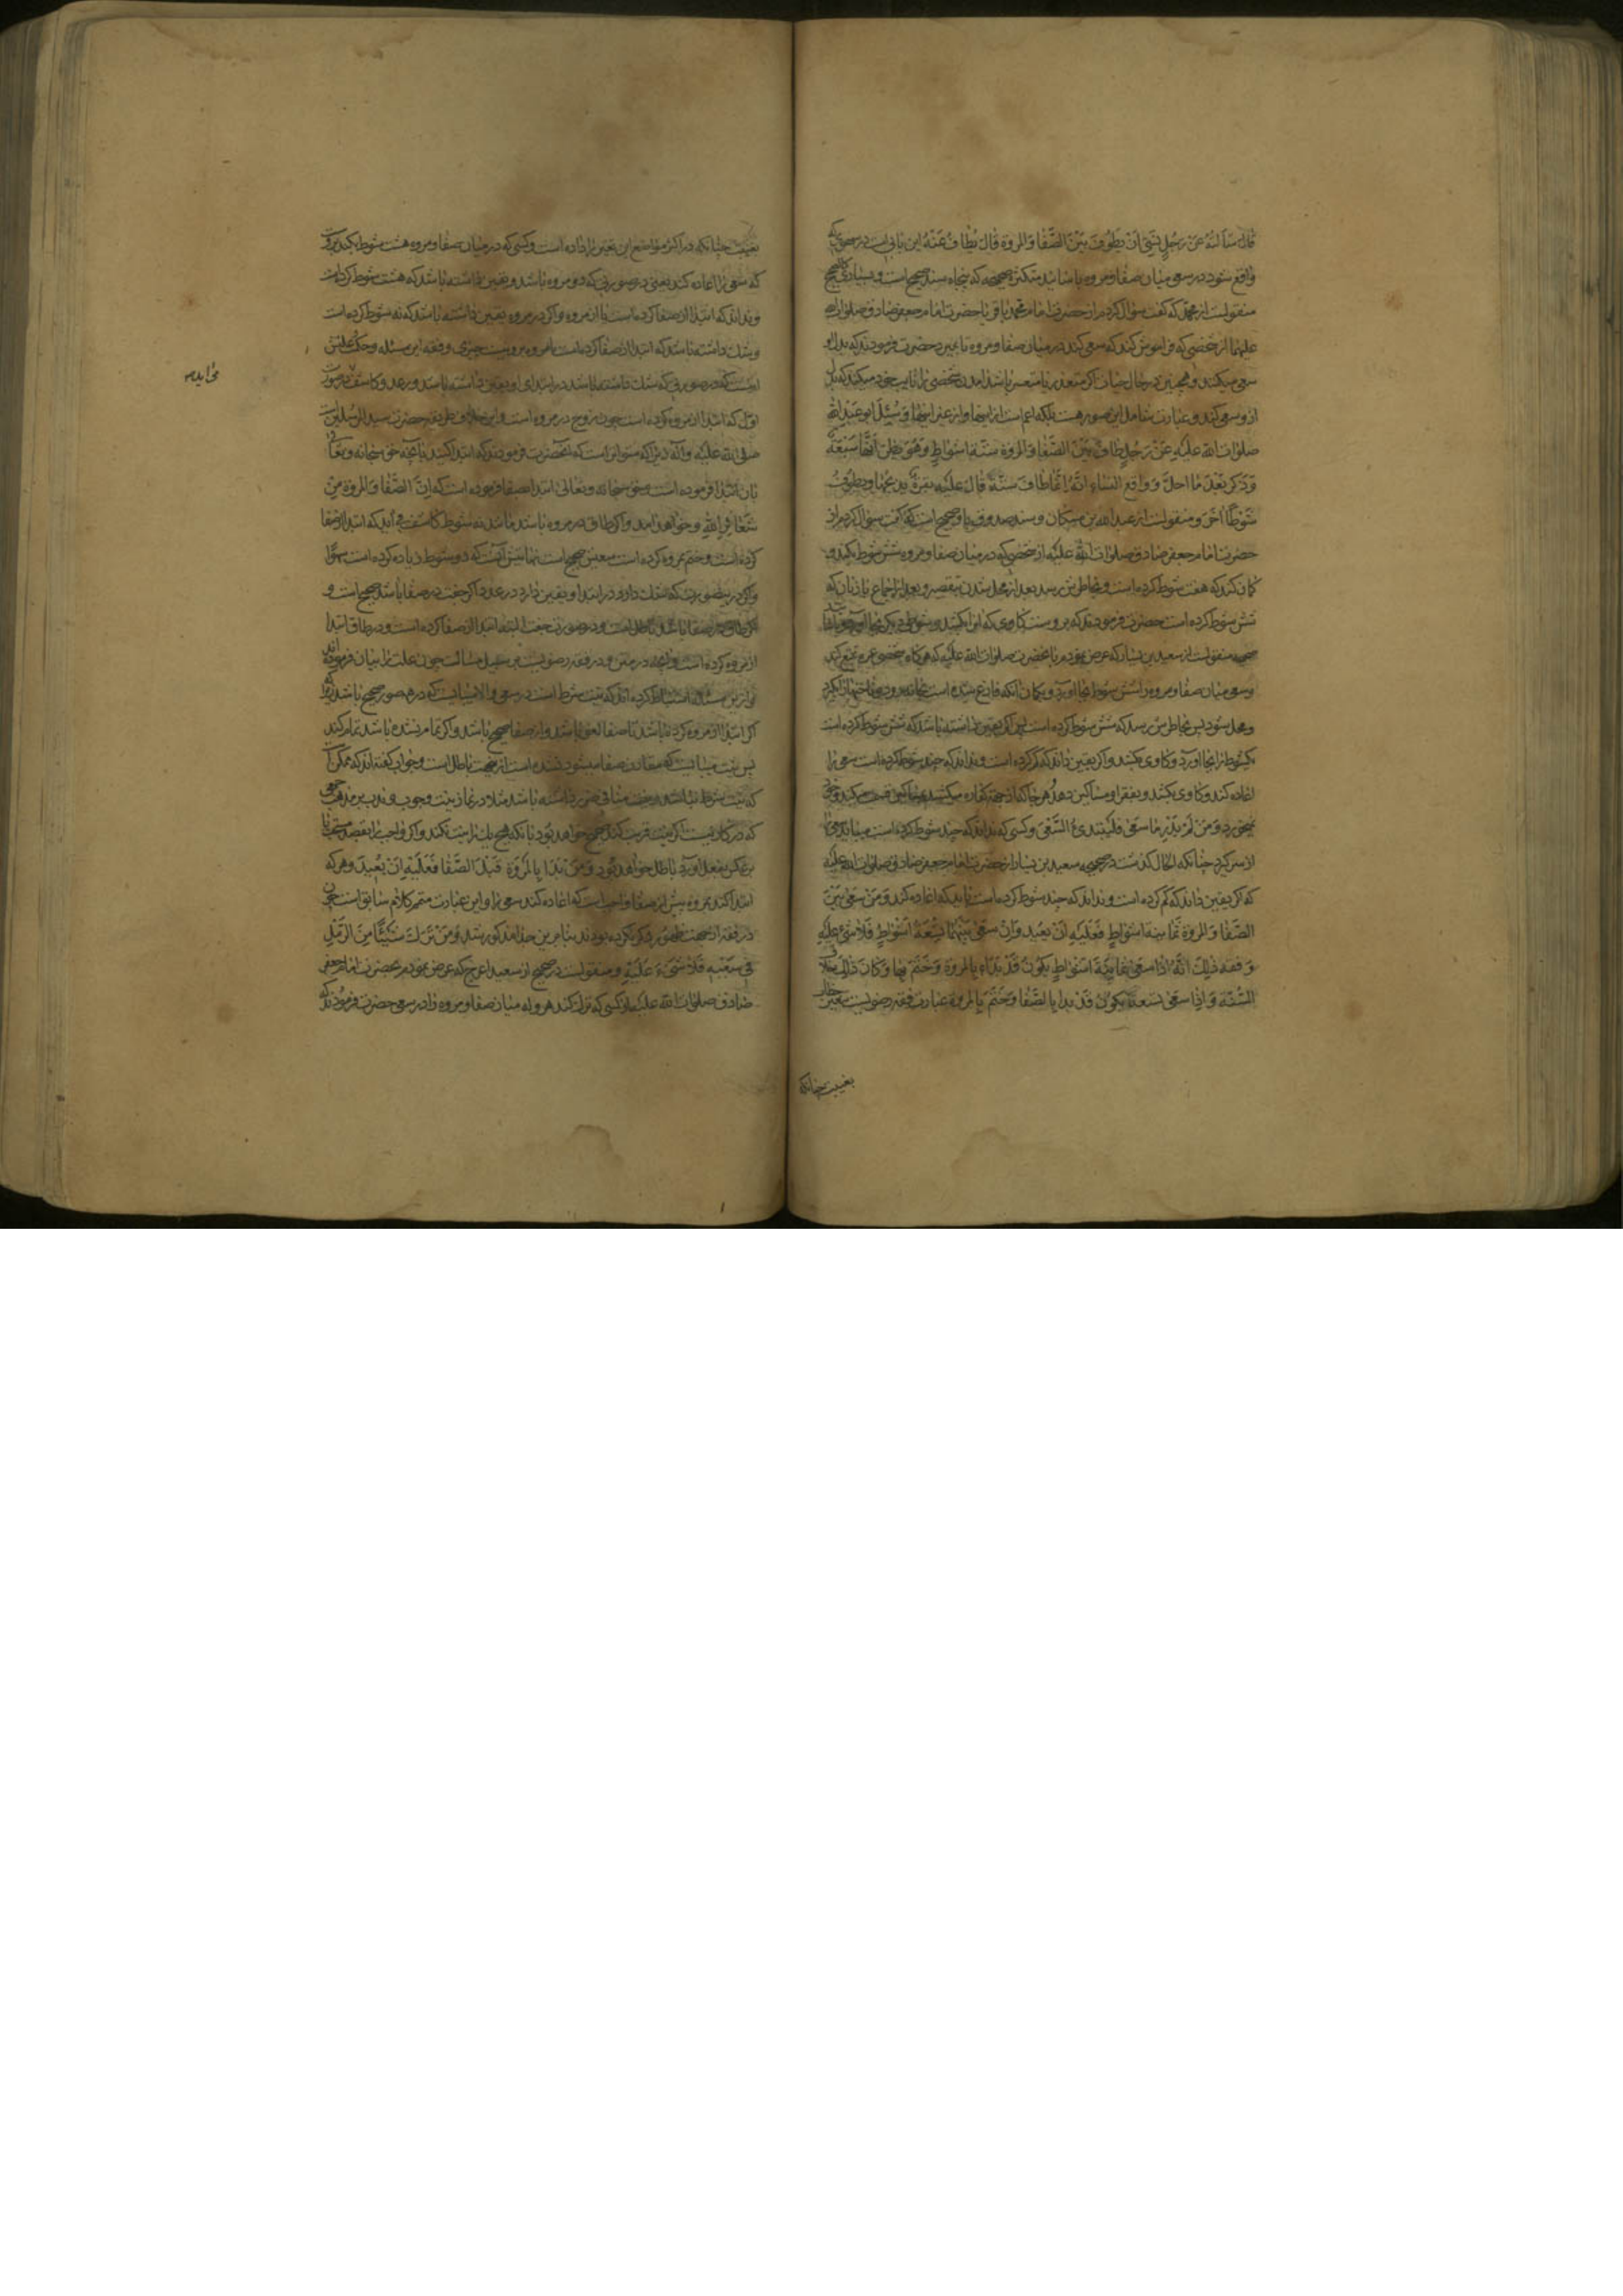 قال سألته عن رجل نسي ان يطوف بين الصفا والمروة قال يطاف عنه این بابی است در سهوی که
واقع شود در سعی میان صفا و مروه باسانید متکثره صحیحه که پنجاه سند صحیح است و بسیاری کالصحیح
منقولست از محمد که گفت سؤال کردم از حضرت امام محمد باقر یا حضرت امام جعفر صادق صلوات الله
علیهما از شخصی که فراموش کند که سعی کند در میان صفا و مروه تا بمیرد حضرت فرمودند که بدل او
سعی میکنند و همچنین در حال حیات اگر متعذر یا متعسر باشد امدن شخصی را نایب خود میکند که بدل
ازو سعی کند و عبارت شامل این صور هست بلکه اعم است از اینها و از غیر اینها وسئل ابو عبد الله
صلوات الله علیه عن رجل طاف بین الصفا والمروة ستة اشواط وهو یظن انها سبعة
وذکر بعد ما احل وواقع النساء انه انما طاف ستة قال علیه بقرة یذبحها ویطوف
شوطا اخر و منقولست از عبد الله بن مسکان و سند صدوق باو صحیح است که گفت سؤال کردم از
حضرت امام جعفر صادق صلوات الله علیه از شخصی که در میان صفا و مروه شش شوط بکند و
گمان کند که هفت شوط کرده است و بخاطرش رسد بعد از محل شدن بتقصیر و بعد از جماع با زنان که
شش شوط کرده است حضرت فرمودند که بروست گاوی که انرا بکشد و شوط دیگر بجا آورد
صحیحه منقولست از سعید بن یسار که عرض نمودم بانحضرت صلوات الله علیه که هر گاه شخصی عمره تمتع کند
و سعی میان صفا و مروه را شش شوط بجا آورد و بگمان آنکه فارغ شده است بخانه رود و ناخنها را بگیرد
و محل شود پس بخاطرش رسد که شش شوط کرده است پس اگر یقین داشته باشد که شش شوط کرده است
یکشوط را بجا آورد و گاوی بکشد و اگر یقین داند که کم کرده است و نداند که چند شوط کرده است سعی را
اعاده کند و گاوی بکشد و بفقرا و مساکین دهد هر جا که از جهة کفاره میکشند بمساکین قسمت میکنند و خود
نمیخورد ومن لم یدر ما سعی فلیبتدئ السعی و کسی که نداند که چند شوط کرده است میباید سعی را
از سر گیرد چنانکه الحال گذشت در صحیحه سعید بن یسار از حضرت امام جعفر صادق صلوات الله علیه
که اگر یقین داند که کم کرده است و نداند که چند شوط کرده است باید که اعاده کند ومن سعی بین
الصفا والمروة ثمانیة اشواط فعلیه ان یعید وان سعی بینهما تسعة اشواط فلا شئ علیه
وفقه ذلک انه اذا سعی ثمانیة اشواط یکون قد بدأ بالمروة وختم بها وکان ذلک خلاف
السنة واذا سعی تسعة یکون قد بدا بالصفا وختم بالمروة عبارت فقه رضویست
بغیبت چنانکه
بغیبت چنانکه در اکثر مواضع این تغییر را داده است و کسی که در میان صفا و مروه هشت شوط بکند بروست
که سعی را اعاده کند یعنی در صورتی که در مروه باشد و یقین داشته باشد که هشت شوط کرده است
و نداند که ابتدا از صفا کرده است یا از مروه و اگر در مروه یقین داشته باشد که نه شوط کرده است
و شک داشته باشد که ابتدا از صفا کرده است یا مروه برو نیست چیزی و فقه این مسئله و حکم علتش
انست که در صورتی که شک داشته باشد در ابتدای او یقین داشته باشد در عدد کاشفست در صورت
اول که ابتدا از مروه کرده است چون زوج در مروه است و این خلاف طریقه حضرت سید المرسلین است
صلی الله علیه و آله زیرا که متواتر است که آنحضرت فرمودند که ابتدا کنید بآنچه حق سبحانه و تعالی
بان ابتدا فرموده است و حق سبحانه و تعالی ابتدا بصفا فرموده است که ان الصفا والمروة من
شعائر الله و خواهد امد و اگر طاق در مروه باشد مانند نه شوط کاشف می آید که ابتدا از صفا
کرده است و ختم بمروه کرده است سعیش صحیح است نهایتش آنست که دو شوط زیاده کرده است سهوا
و اگر درین صورت که شک دارد در ابتدا و یقین دارد در عدد اگر جفت در صفا باشد صحیح است و
اگر طاق در صفا باشد باطل است و در صورت جفت البته ابتدا از صفا کرده است و در طاق ابتدا
از مروه کرده است و آنچه در متن و در فقه رضویست بر سبیل مثالست چون علت را بیان فرموده اند
و ازین مسئله استنباط کرده اند که نیت شرط است در سعی والا نمیبایست که در همه صور صحیح باشد زیرا که
اگر ابتدا از مروه کرده باشد تا صفا لغو باشد و از صفا صحیح باشد و اگر تمام نشده باشد تمام کند
پس نیت میبایست که مقارن صفا میشود نشده است از جهت باطل است و جواب گفته اند که ممکن است
که نیت شرط نباشد و نیت منافی ضرر داشته باشد مثلا در نماز نیت وجوب و ندب بر مذهب جمعی
که در کار نیست اگر نیت قربت کند صحیح خواهد بود بآنکه هیچ یک را نیت نکند و اگر واجب را بقصد مستحب یا
برعکس بفعل آورد باطل خواهد بود ومن بدا بالمروة قبل الصفا فعلیه ان یعید و هر که
ابتدا کند بمروه پیش از صفا واجب است که اعاده کند سعی را و این عبارت متمم کلام سابق است چون
در فقه از جهت ظهور ذکر نکرده بودند بنابرین جدا مذکور شد ومن ترک شیئا من الرمل
فی سعیه فلا شیء علیه و منقولست در صحیح از سعید اعرج که عرض نمودم بحضرت امام جعفر
صادق صلوات الله علیه که کسی که ترک کند هروله میان صفا و مروه را در سعی حضرت فرمودند که